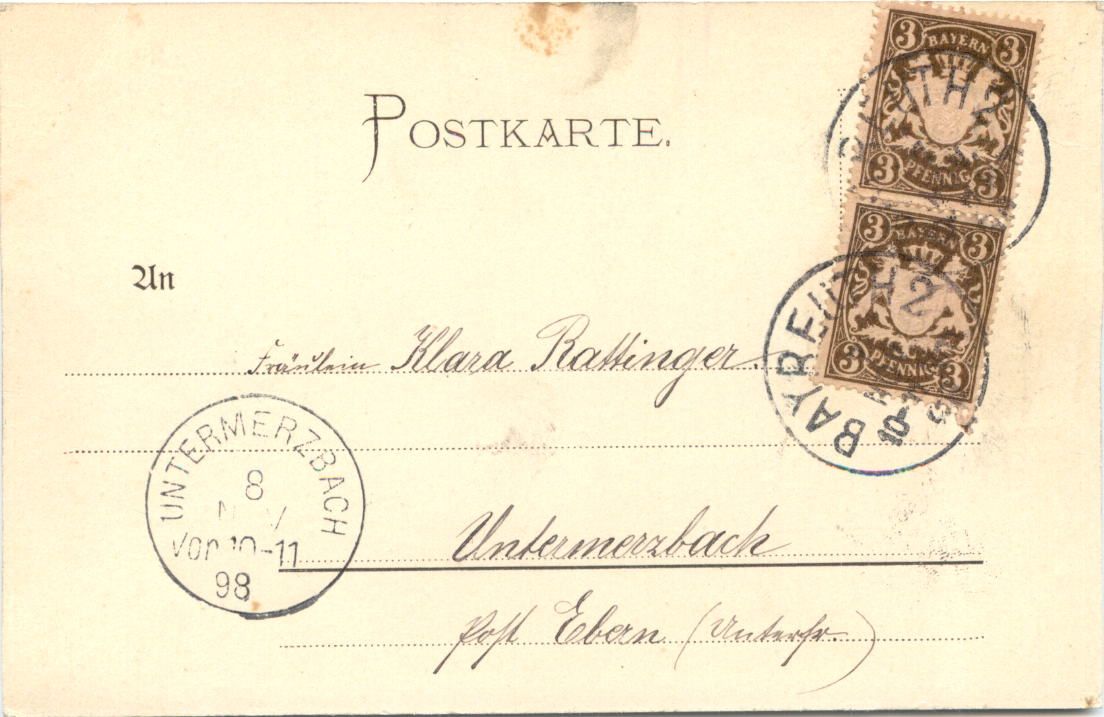 POSTKARTE.
3 BAYERN 3
3 PFENNIG 3
3 BAYERN 3
3 PFENNIG 3
TH 2
BAYREUTH 2
An
Fräulein Klara Rattinger.
UNTERMERZBACH
8
NOV
Vor. 10-11
98
Untermerzbach
Post Ebern (Unterfr.)